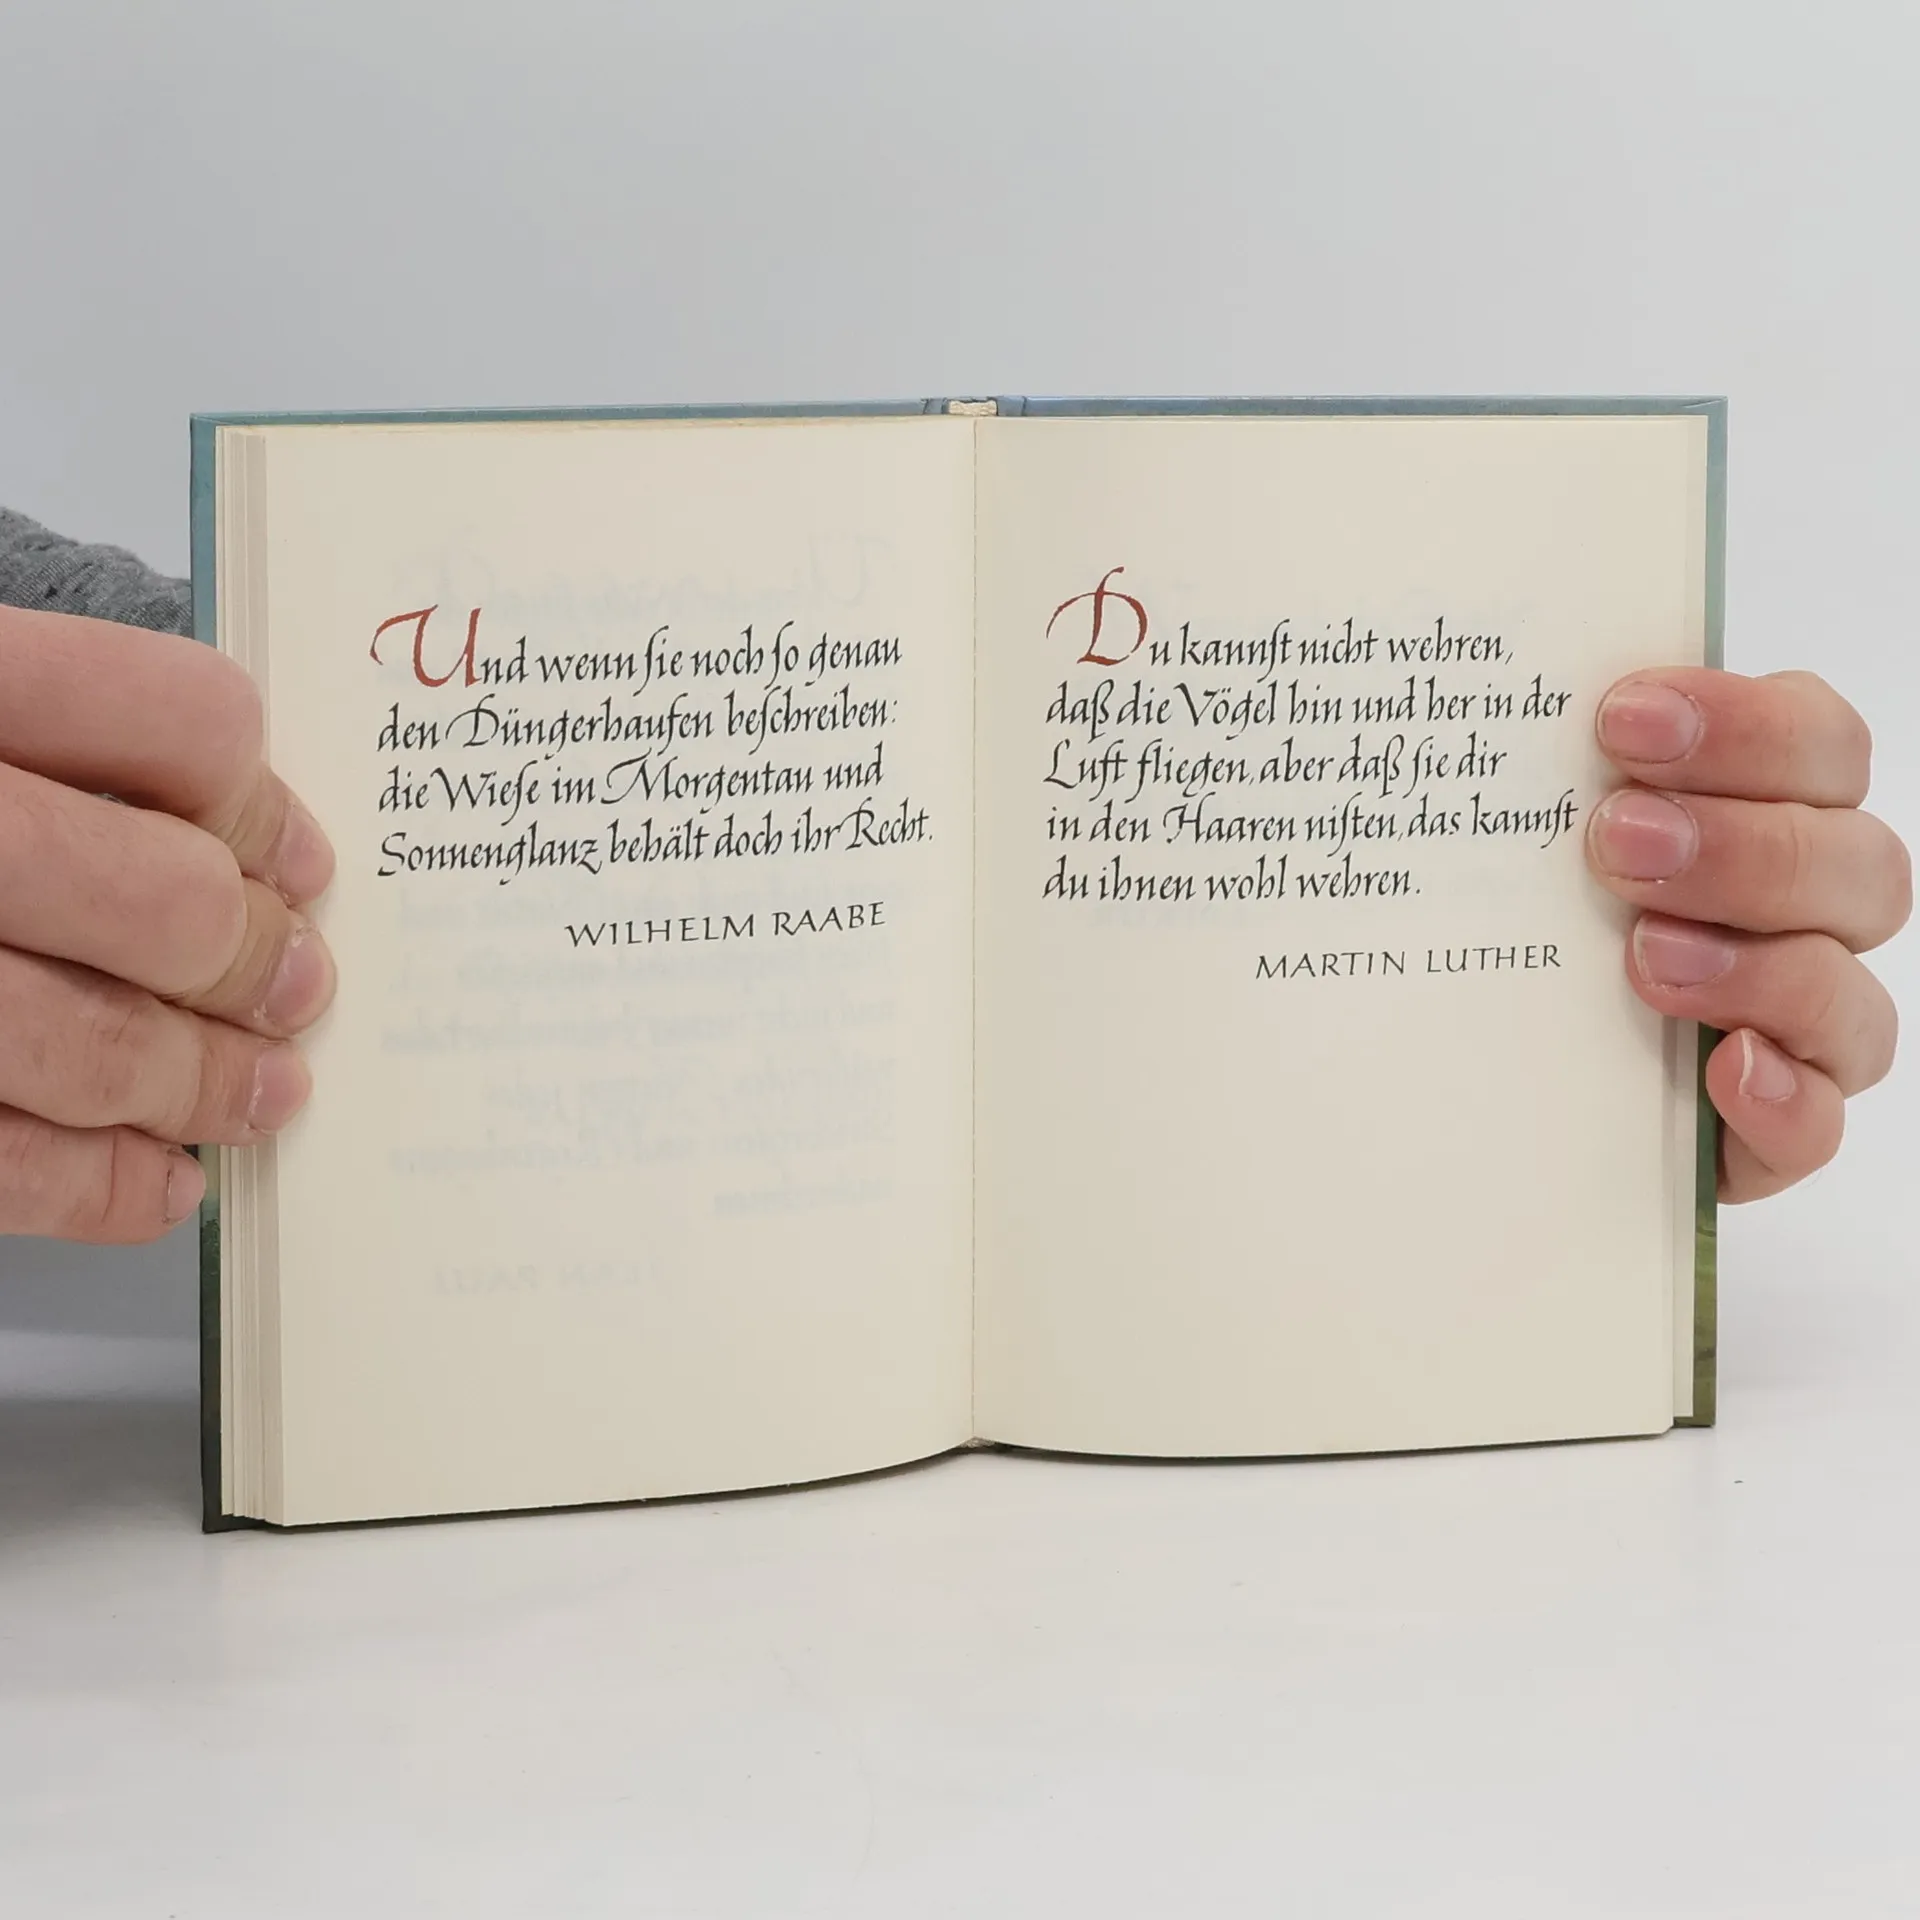 Und wenn ſie noch ſo genau
den Düngerhaufen beſchreiben:
die Wieſe im Morgentau und
Sonnenglanz behält doch ihr Recht.
WILHELM RAABE
Du kannſt nicht wehren,
daß die Vögel hin und her in der
Luft fliegen, aber daß ſie dir
in den Haaren niſten, das kannſt
du ihnen wohl wehren.
MARTIN LUTHER